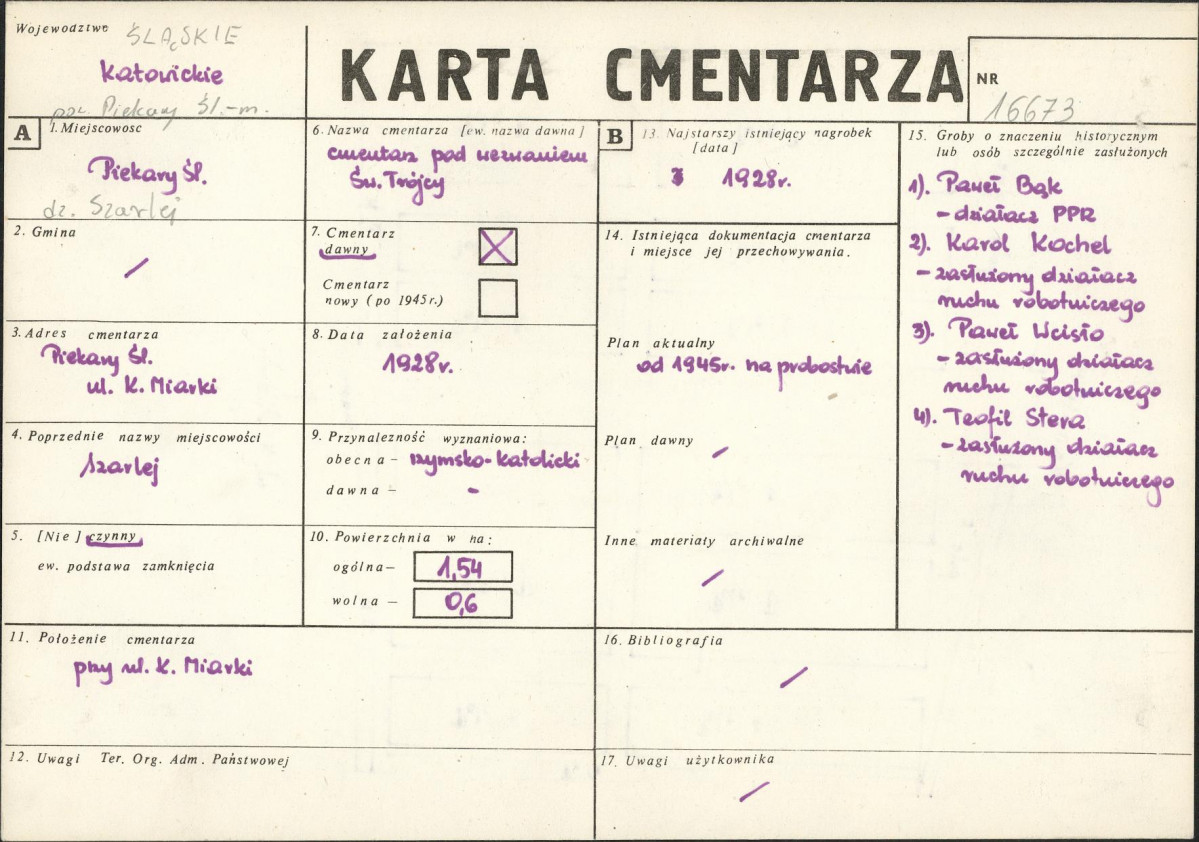 Województwo ŚLĄSKIE
Katowickie
pow. Piekary Śl.-m.
KARTA CMENTARZA
NR
16673
A
1. Miejscowosc
Piekary Śl.
dz. Szarlej
2. Gmina
/
3. Adres cmentarza
Piekary Śl.
ul. K. Miarki
4. Poprzednie nazwy miejscowości
Szarlej
5. [Nie] czynny
ew. podstawa zamknięcia
6. Nazwa cmentarza [ew. nazwa dawna]
cmentarz pod wezwaniem
Św. Trójcy
7. Cmentarz
dawny
Cmentarz
nowy (po 1945 r.)
8. Data założenia
1928r.
9. Przynależność wyznaniowa:
obecna – rzymsko-katolicki
dawna – -
10. Powierzchnia w ha:
ogólna – 1,54
wolna – 0,6
11. Położenie cmentarza
przy ul. K. Miarki
12. Uwagi Ter. Org. Adm. Państwowej
B
13. Najstarszy istniejący nagrobek
[data]
1928r.
14. Istniejąca dokumentacja cmentarza
i miejsce jej przechowywania.
Plan aktualny
od 1945r. na probostwie
Plan dawny
/
Inne materiały archiwalne
/
15. Groby o znaczeniu historycznym
lub osób szczególnie zasłużonych
1). Paweł Bąk
- działacz PPR
2). Karol Kochel
- zasłużony działacz
ruchu robotniczego
3). Paweł Wcisło
- zasłużony działacz
ruchu robotniczego
4). Teofil Stera
- zasłużony działacz
ruchu robotniczego
16. Bibliografia
/
17. Uwagi użytkownika
/